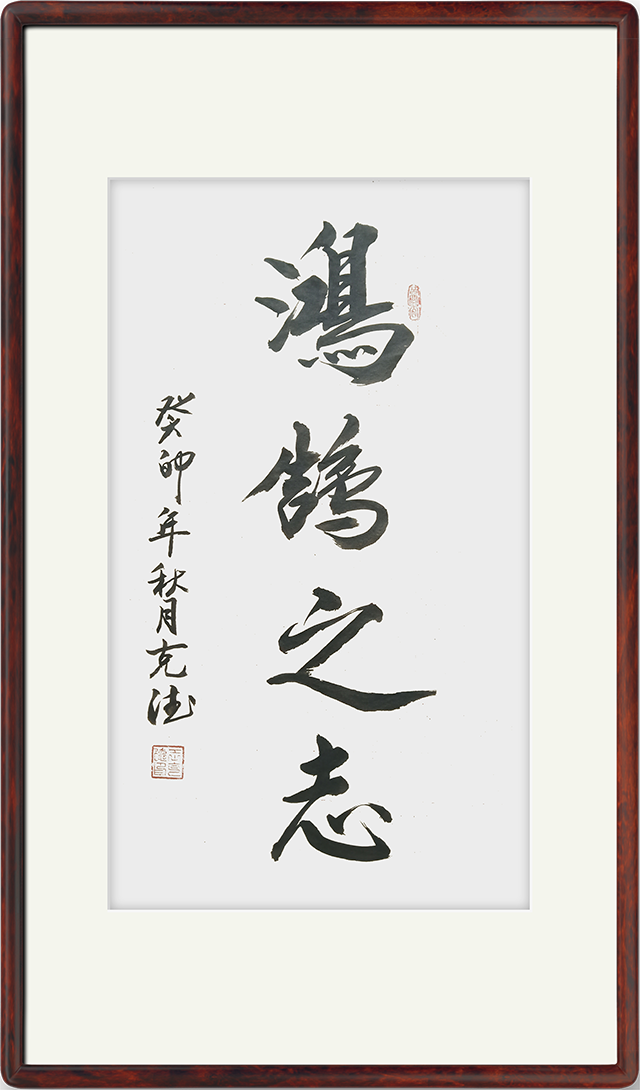 鴻鹄之志
癸卯年秋月克德